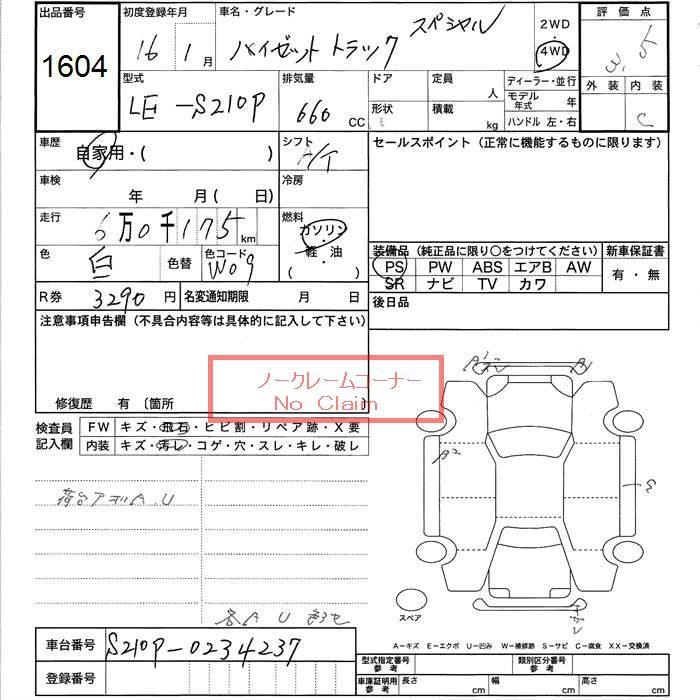 出品番号 初度登録年月 車名・グレード 2WD 評価点
1604 16年 1月 ハイゼットトラック スペシャル 4WD 3.5
外装 内装
C
型式 排気量 ドア 定員 ディーラー・並行
LE-S210P 660 CC 形状 積載 人 kg モデル年式 年
ハンドル 左・右
車歴 自家用・( ) シフト A/T セールスポイント(正常に機能するものに限ります)
車検 年 月( 日) 冷房
走行 6万0千175km 燃料 ガソリン・軽油
( )
色 白 色替 色コード W09
装備品(純正品に限り〇をつけてください) 新車保証書
PS PW ABS エアB AW 有・無
SR ナビ TV カワ
R券 3290円 名変通知期限 月 日 後日品
注意事項申告欄(不具合内容等は具体的に記入して下さい)
ノークレームコーナー
No Claim
修復歴 有 〔箇所 〕
検査員記入欄 FW キズ・飛石・ヒビ割・リペア跡・X要
内装 キズ・汚レ・コゲ・穴・スレ・キレ・破レ
A²
荷台 A.U
各AU
スペア
A-キズ E-エクボ U-凹み W-補修跡 S-サビ C-腐食 XX-交換済
車台番号 S210P-0234237
型式指定番号 参考 類別区分番号 参考
登録番号
車庫証明用 参考 長さ cm 幅 cm 高さ cm